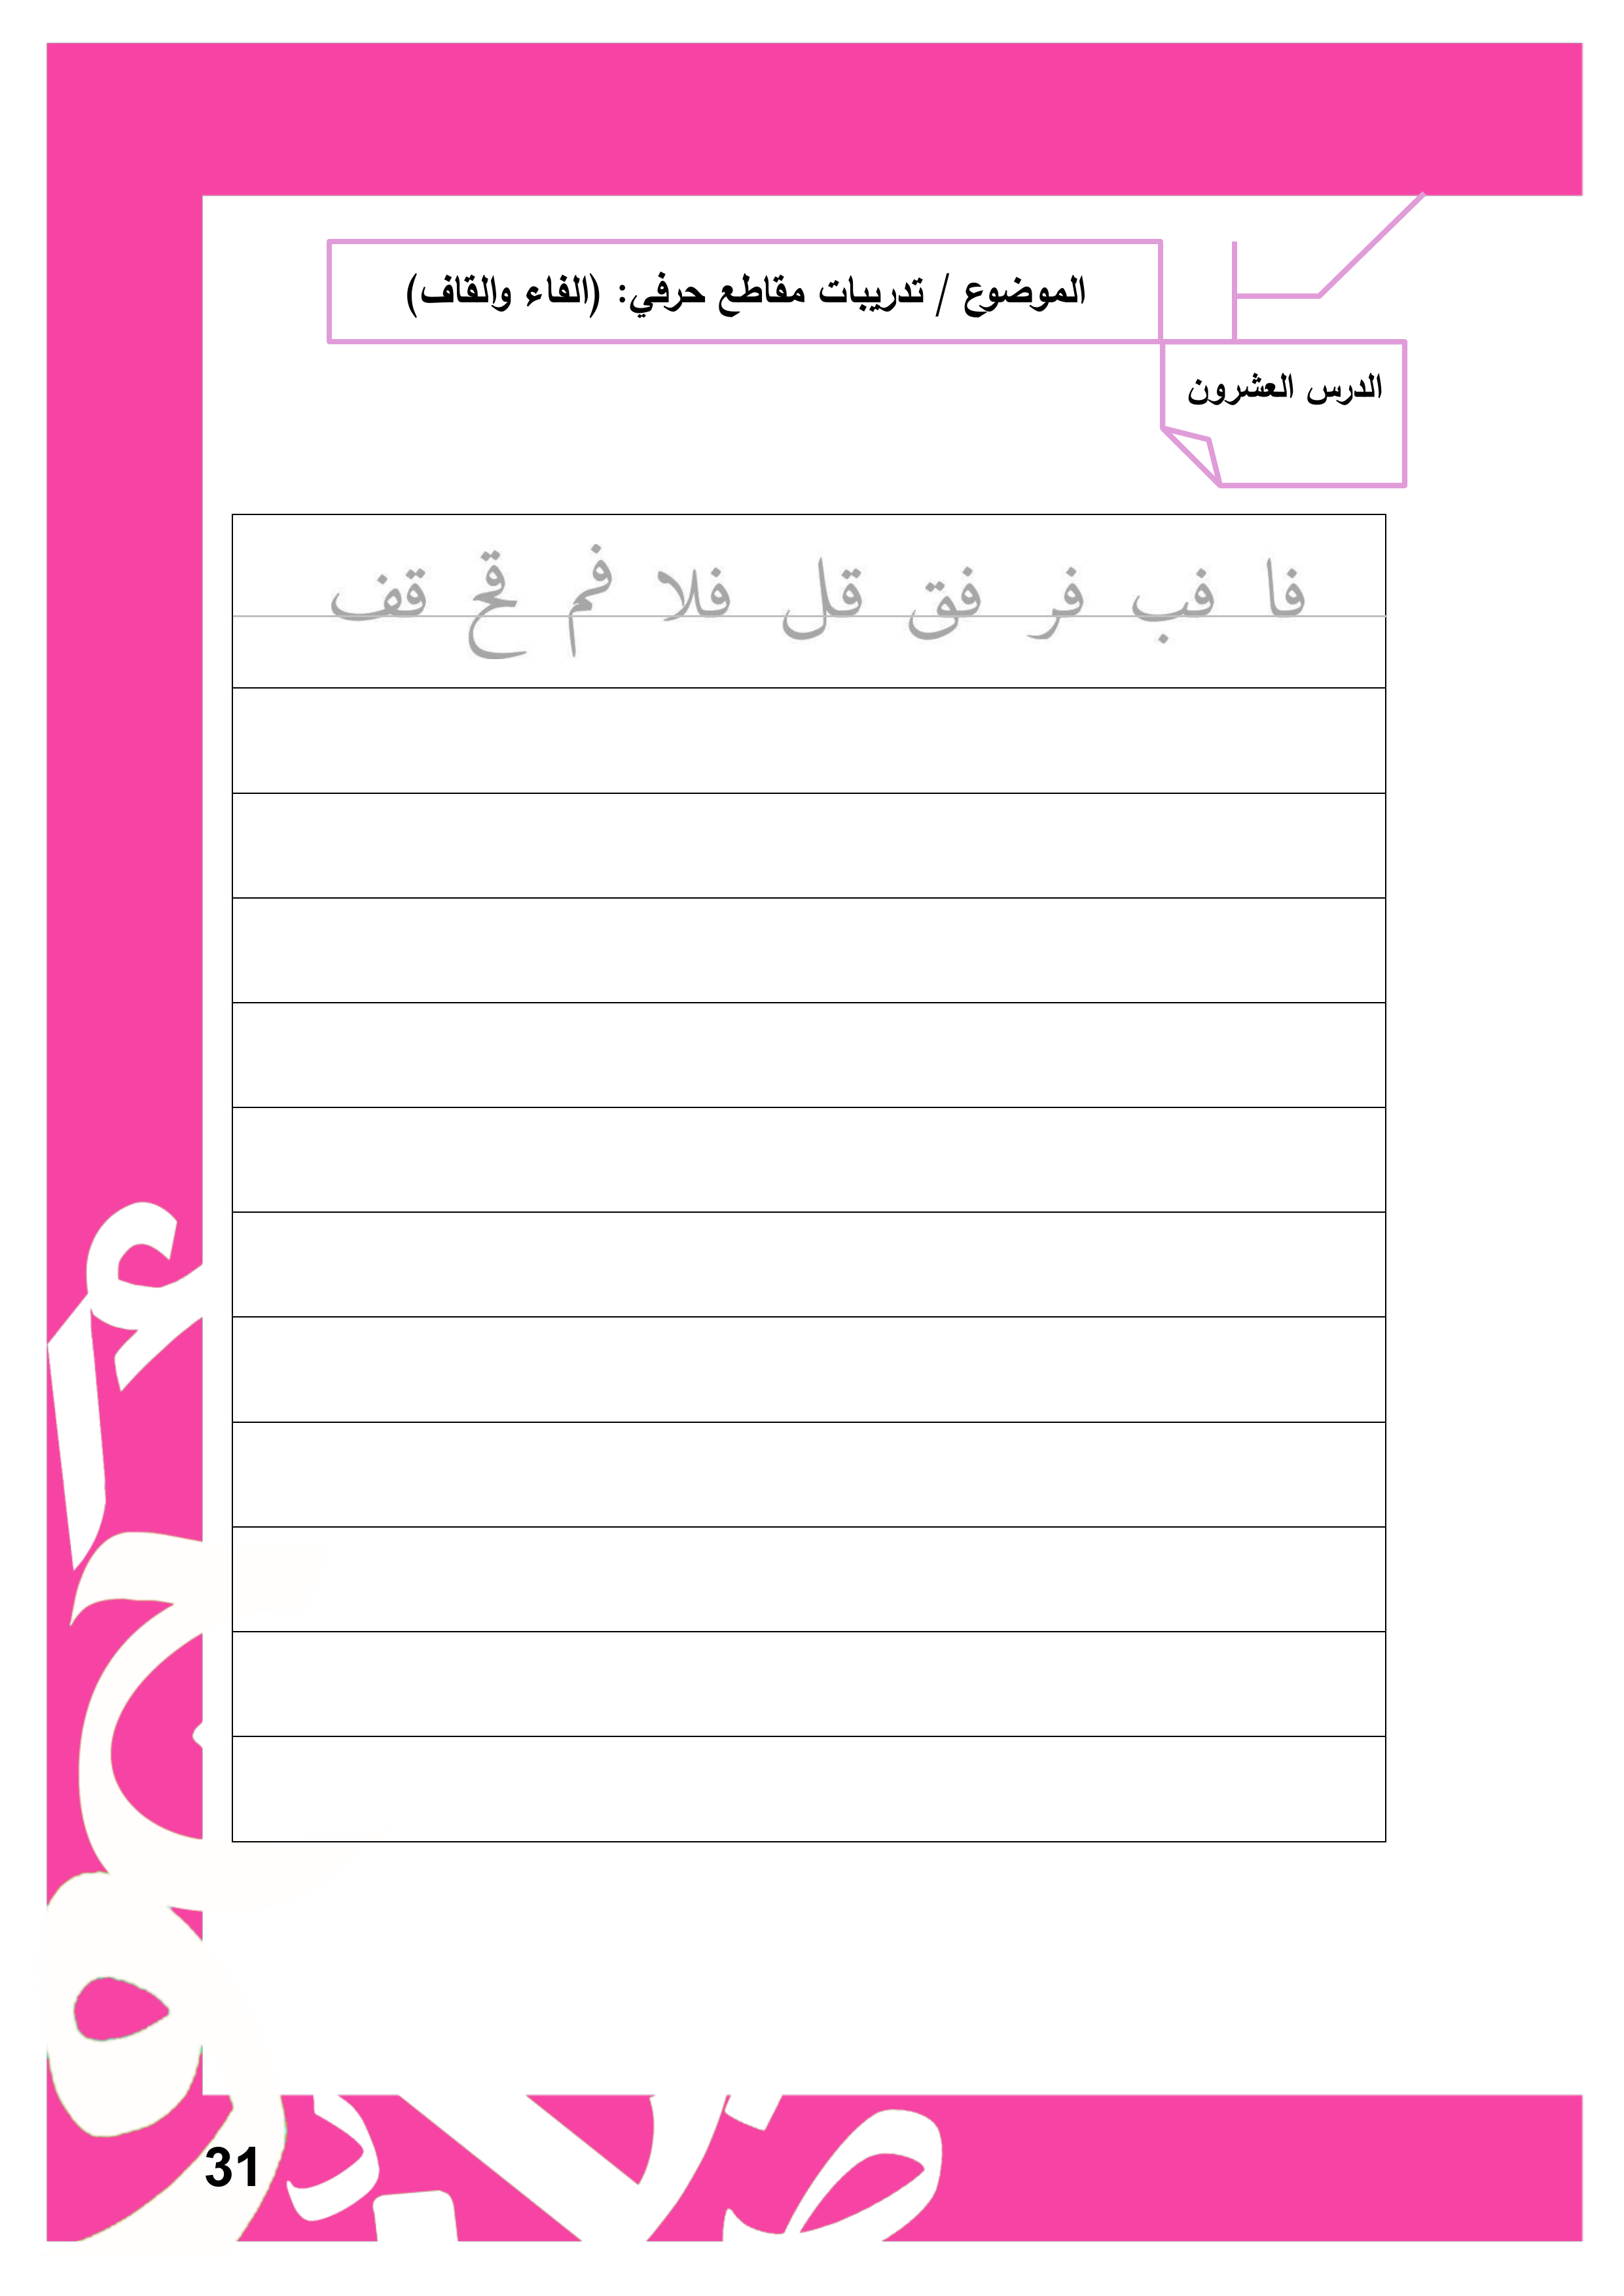 الموضوع / تدريبات مقاطع حرفي: (الفاء والقاف)
الدرس العشرون
فا فب فر فق قل فلا فم قح قف
31